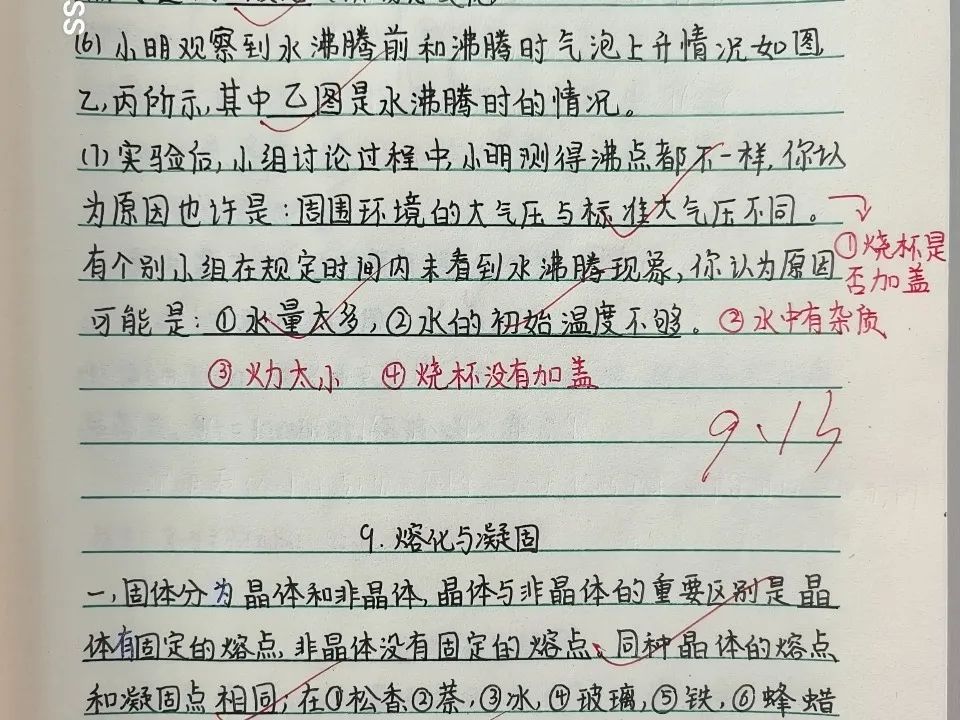 (6) 小明观察到水沸腾前和沸腾时气泡上升情况如图
乙,丙所示,其中乙图是水沸腾时的情况。
(7) 实验后,小组讨论过程中,小明测得沸点都不一样,你认
为原因也许是:周围环境的大气压与标准大气压不同。
①烧杯是
否加盖
有个别小组在规定时间内未看到水沸腾现象,你认为原因
可能是:①水量太多,②水的初始温度不够。②水中有杂质
③火力太小 ④烧杯没有加盖
9.13
9.熔化与凝固
一,固体分为晶体和非晶体,晶体与非晶体的重要区别是晶
体有固定的熔点,非晶体没有固定的熔点。同种晶体的熔点
和凝固点相同;在①松香②萘,③冰,④玻璃,⑤铁,⑥蜂蜡